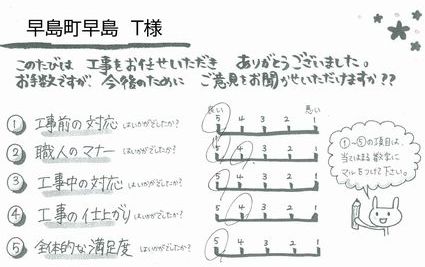 早島町早島 T様
このたびは 工事をお任せいただき ありがとうございました。
お手数ですが、今後のために ご意見をお聞かせいただけますか??
良い 悪い
① 工事前の対応 はいかがでしたか? 5 4 3 2 1
② 職人のマナー はいかがでしたか? 5 4 3 2 1
③ 工事中の対応 はいかがでしたか? 5 4 3 2 1
④ 工事の仕上がり はいかがでしたか? 5 4 3 2 1
⑤ 全体的な満足度 はいかがでしたか? 5 4 3 2 1
①~⑤の項目は、
当てはまる数字に
マルをつけて下さい。